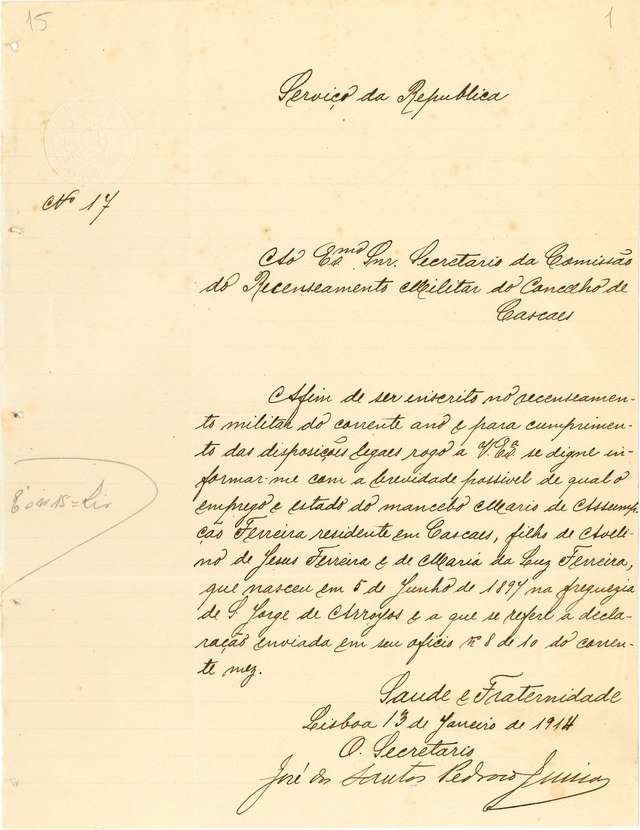 15
1
Serviço da Republica
Nº 17
Ao Exmo Snr. Secretario da Comissão
do Recenseamento Militar do Concelho de
Cascaes
Afim de ser inscrito no recenseamen-
to militar do corrente ano e para cumprimen-
to das disposições legaes rogo a V. Exª se digne in-
formar-me com a brevidade possivel de qual o
emprego e estado do mancebo Mario de Assump-
ção Ferreira residente em Cascaes, filho de Aveli-
no de Jesus Ferreira e de Maria da Luz Ferreira,
que nasceu em 5 de Junho de 1897 na freguezia
de S. Jorge de Arroyos e a que se refere a decla-
ração enviada em seu oficio nº 8 de 10 do corren-
te mez.
Saude e Fraternidade
Lisboa 13 de Janeiro de 1914
O. Secretario
José dos Santos Pedroso